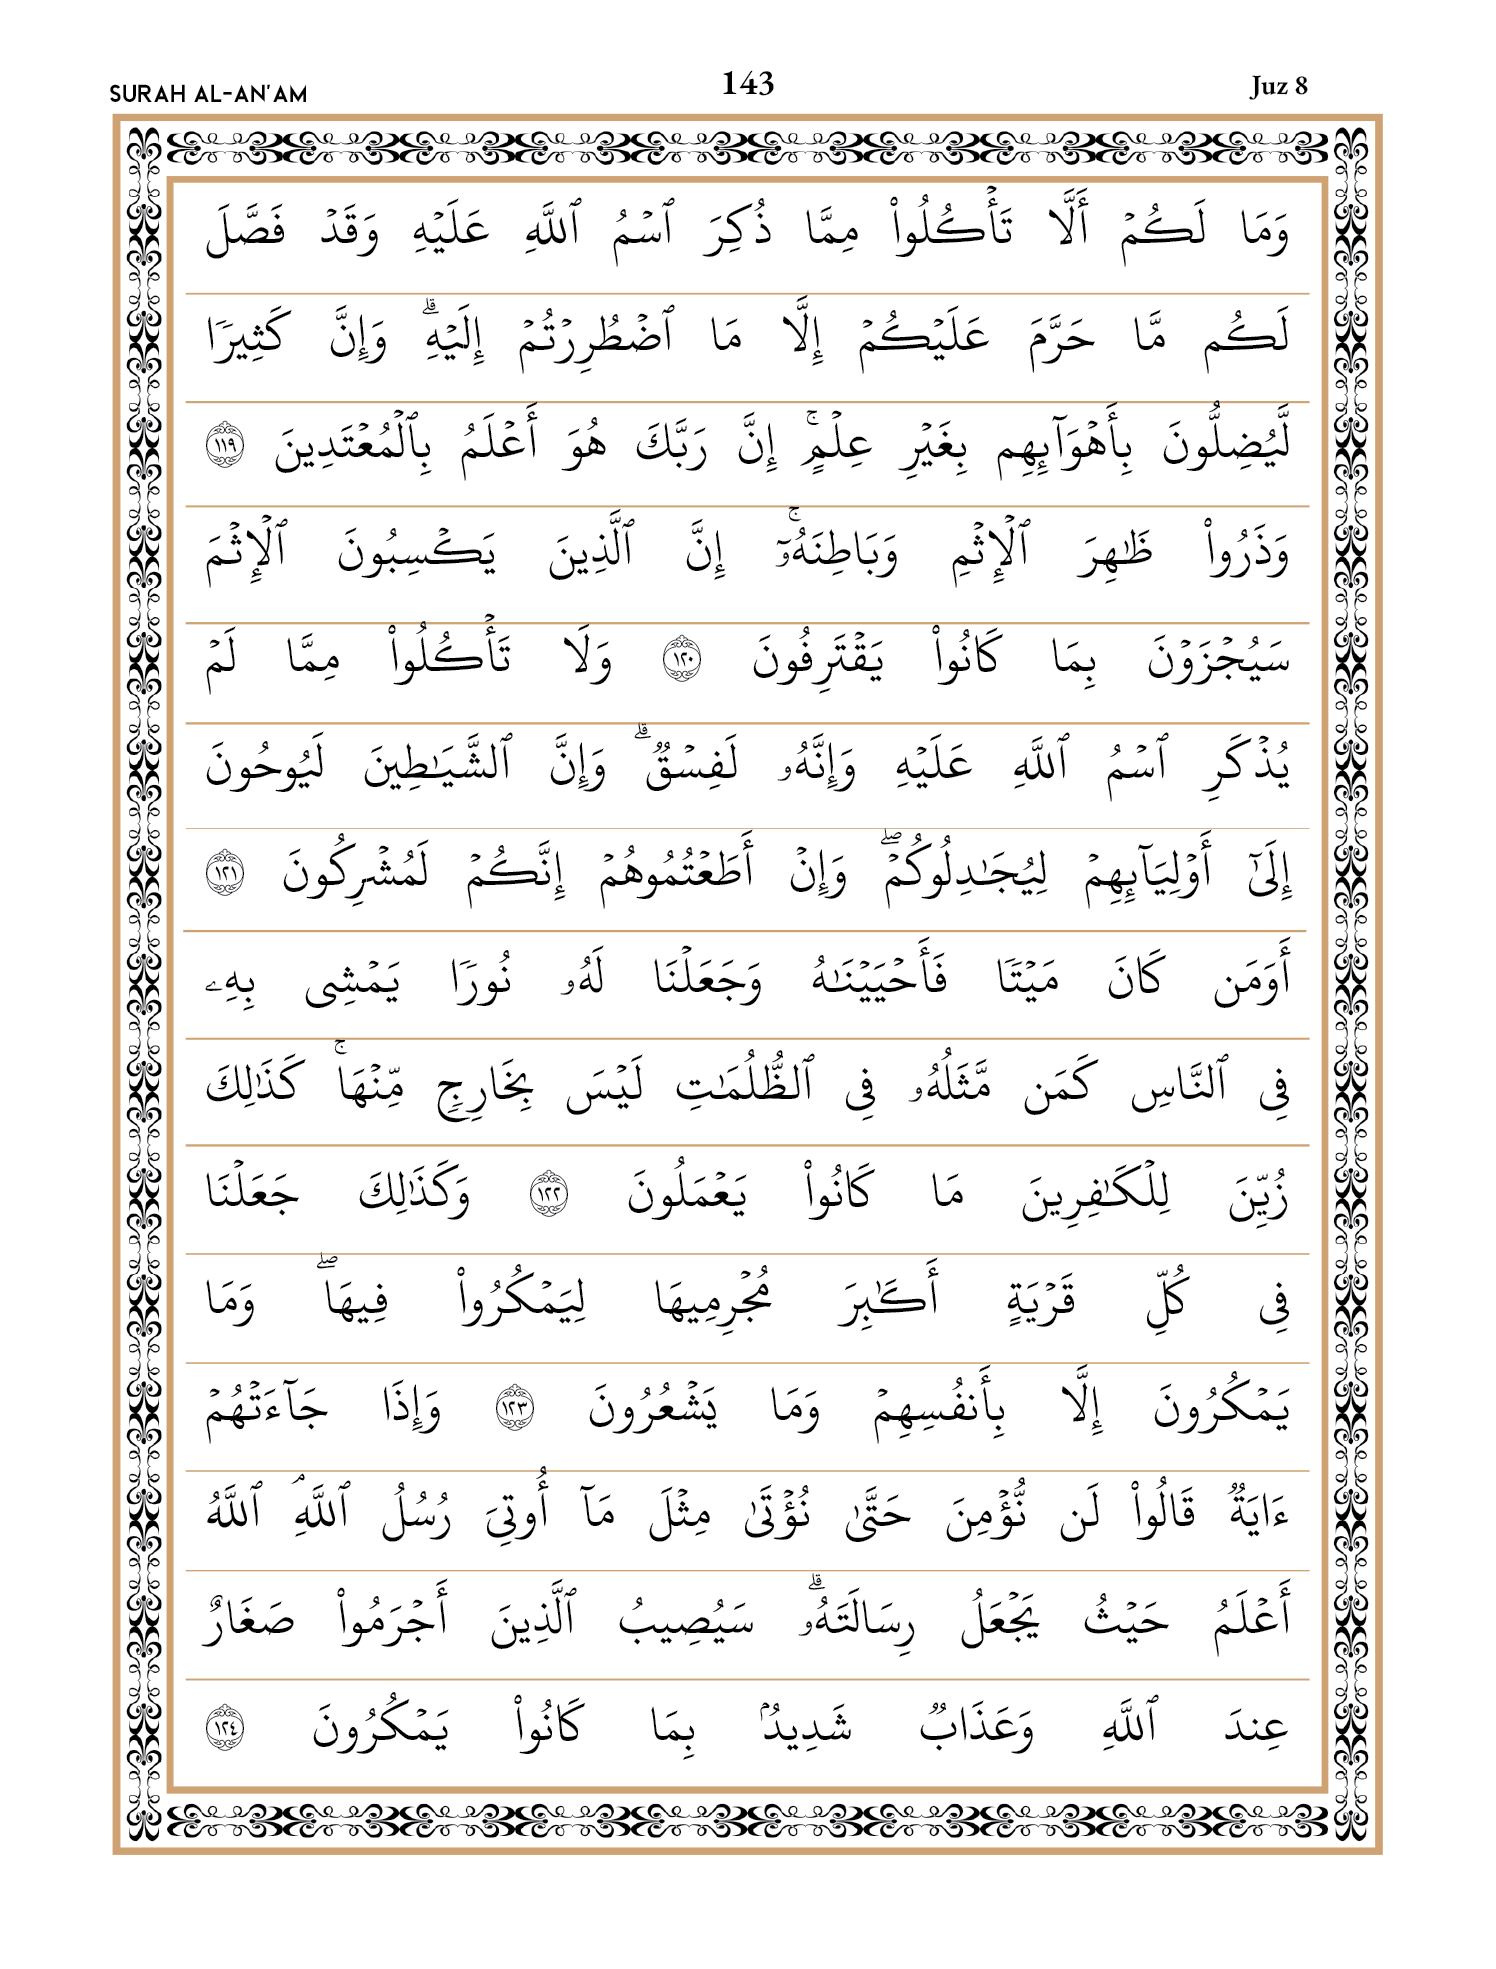 SURAH AL-AN'AM 143 Juz 8
وَمَا لَكُمۡ أَلَّا تَأۡكُلُواْ مِمَّا ذُكِرَ ٱسۡمُ ٱللَّهِ عَلَيۡهِ وَقَدۡ فَصَّلَ
لَكُم مَّا حَرَّمَ عَلَيۡكُمۡ إِلَّا مَا ٱضۡطُرِرۡتُمۡ إِلَيۡهِۗ وَإِنَّ كَثِيرٗا
لَّيُضِلُّونَ بِأَهۡوَآئِهِم بِغَيۡرِ عِلۡمٍۚ إِنَّ رَبَّكَ هُوَ أَعۡلَمُ بِٱلۡمُعۡتَدِينَ ١١٩
وَذَرُواْ ظَٰهِرَ ٱلۡإِثۡمِ وَبَاطِنَهُۥٓۚ إِنَّ ٱلَّذِينَ يَكۡسِبُونَ ٱلۡإِثۡمَ
سَيُجۡزَوۡنَ بِمَا كَانُواْ يَقۡتَرِفُونَ ١٢٠ وَلَا تَأۡكُلُواْ مِمَّا لَمۡ
يُذۡكَرِ ٱسۡمُ ٱللَّهِ عَلَيۡهِ وَإِنَّهُۥ لَفِسۡقٞۗ وَإِنَّ ٱلشَّيَٰطِينَ لَيُوحُونَ
إِلَىٰٓ أَوۡلِيَآئِهِمۡ لِيُجَٰدِلُوكُمۡۖ وَإِنۡ أَطَعۡتُمُوهُمۡ إِنَّكُمۡ لَمُشۡرِكُونَ ١٢١
أَوَمَن كَانَ مَيۡتٗا فَأَحۡيَيۡنَٰهُ وَجَعَلۡنَا لَهُۥ نُورٗا يَمۡشِي بِهِۦ
فِي ٱلنَّاسِ كَمَن مَّثَلُهُۥ فِي ٱلظُّلُمَٰتِ لَيۡسَ بِخَارِجٖ مِّنۡهَاۚ كَذَٰلِكَ
زُيِّنَ لِلۡكَٰفِرِينَ مَا كَانُواْ يَعۡمَلُونَ ١٢٢ وَكَذَٰلِكَ جَعَلۡنَا
فِي كُلِّ قَرۡيَةٍ أَكَٰبِرَ مُجۡرِمِيهَا لِيَمۡكُرُواْ فِيهَاۖ وَمَا
يَمۡكُرُونَ إِلَّا بِأَنفُسِهِمۡ وَمَا يَشۡعُرُونَ ١٢٣ وَإِذَا جَآءَتۡهُمۡ
ءَايَةٞ قَالُواْ لَن نُّؤۡمِنَ حَتَّىٰ نُؤۡتَىٰ مِثۡلَ مَآ أُوتِيَ رُسُلُ ٱللَّهِۘ ٱللَّهُ
أَعۡلَمُ حَيۡثُ يَجۡعَلُ رِسَالَتَهُۥۗ سَيُصِيبُ ٱلَّذِينَ أَجۡرَمُواْ صَغَارٌ
عِندَ ٱللَّهِ وَعَذَابٞ شَدِيدُۢ بِمَا كَانُواْ يَمۡكُرُونَ ١٢٤